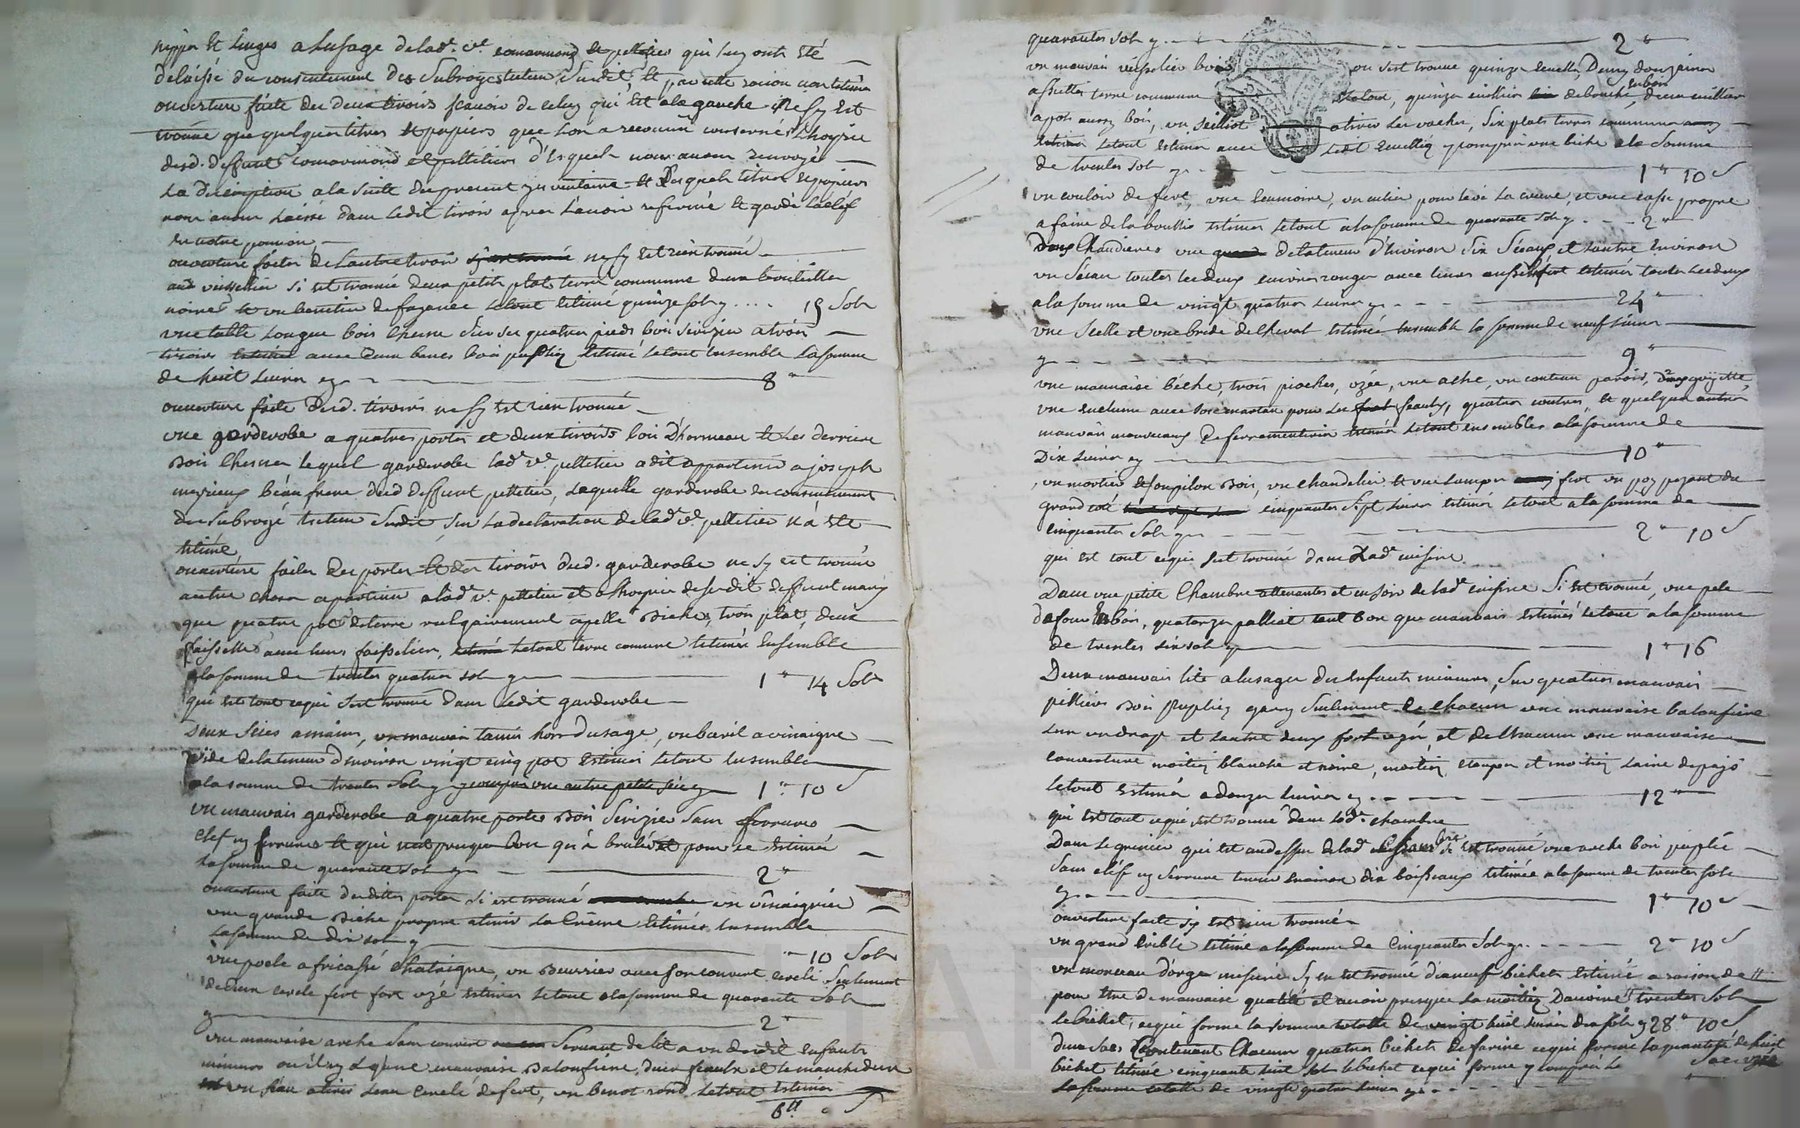 nippes et linges a lusage de lad. ve. comarmond et pelletier qui luy ont été
delaissé du consentement du Subrogé tuteur Susdit, et
ouverture faite des deux tiroirs scavoir de celuy qui est a la gauche il ne sy est
trouvé que quelques titres et papiers que lon a reconnu concernés l'hoyrie
desd. deffunts comarmond et pelletier desquels nous avons renvoyé
la description a la suitte du present inventaire et desquels titres et papiers
nous avons laissé dans ledit tiroir apres l'avoir refermé et gardé la clef
en notre pouvoir
ouverture faites de l'autre tiroir ne sy est rien trouvé
au vesselier si est trouvé deux petits plats terre commune deux bouteilles
noires et un benitier de fayence estimé quinze sols y .... 15 Sols
une table longue bois chesne sur ses quatres pieds bois serizier a trois
tiroirs avec deux bancs bois puplié estimé le tout ensemble la somme
de huit livres cy 8 "
ouverture faite desd. tiroirs ne sy est rien trouvé
une garderobe a quatres portes et deux tiroirs bois d'hormeau et les derriere
bois chesne lequel garderobe lad. ve. pelletier a dit appartenir a joseph
mezieux béau frere dud deffunt pelletier, laquelle garderobe du consentement
du subrogé tuteur susdit sur la declaration de lad. ve. pelletier n'a été
estimé
ouverture faites des portes et des tiroirs dud. garderobe ne sy est trouvé
autres choses apartenir a lad. ve. pelletier et a l'hoyrie de sondit deffunt mary
que quatre pots de terre vulgairement apellé Biches, trois plats, deux
faisselles avec leurs faisselier, le tout terre comune estimés ensemble
a la somme de trentes quatres sols y 1 " 14 Sols
qui est tout cequi sest trouvé dans ledit garderobe
deux scies a mains, un mauvais tamis hors dusage, un baril a vinaigre
vide de la teneur d'environ vingt cinq pot estimés le tout ensemble
a la somme de trentes sols y y compris une autre petite scie cy 1 " 10 S
un mauvais garderobe a quatre portes bois serizier sans ferrures
clef ny serrures et qui n'est presque bon qu'à brulé et pour ce estimé
la somme de quarante sols y 2 "
ouverture faite desdites portes si est trouvé un vinaigrier
une grande biche propre a tenir la crême estimés ensemble
la somme de dix sols y " 10 Sols
une poele a fricassé chataigne, un beurrier avec son couvert cerclé seulement
de deux cercle fert fort uzé estimés le tout a la somme de quarante sols
y 2 "
une mauvaise arche sans couvert servant de lit a un desdit enfants
mineurs ou il ny a qu'une mauvaise baloufiere, deux et le manche dun
un seau cerclé de fert, un benot rond le tout estimés
6 "
quarantes sols y 2 "
un mauvais vesselier bois ou sest trouvé quinze écuelles, Demy douzaines
assiettes terre commune, quinze cuilliers de bouche, deux cuilliers
a pot aussy bois, un seilliot a tirer les vaches, six plats terres communes
le tout estimés avec y compris une biche a la somme
de trentes sols y 1 " 10 S
un couloir de fert, une écumoire, un cullier pour levé la creme, et une casse propre
a faire de la bouillie estimés le tout a la somme de quarante sols y 2 "
Deux chaudieres une de la teneur d'environ six séaux et l'autre environ
un séau toutes les deux cuivre rouge avec leurs anses fert estimés toutes les deux
a la somme de vingt quatres livres y 24 "
une selle et une bride de cheval estimée ensemble la somme de neuf livres
y 9 "
une mauvaise bêche, trois pioches, uzée, une ache, un couteau paroir,
une enclume avec son marteau pour les feaulx, quatres coutres, et quelques autres
mauvais morceaux de ferramenteries le tout ensembles a la somme de
Dix livres cy 10 "
un mortier et son pilon bois, un chandelier et une lampe fert un poy pezant du
grand coté cinquantes sept livres estimés le tout a la somme de
cinquantes sols y 2 " 10 S
qui est tout cequi sest trouvé dans lad. cuisine
Dans une petite chambre attenantes et en soir de lad. cuisine si est trouvé, une pele
a four bois, quatorze palliat tant bon que mauvais estimés le tout a la somme
de trentes six sols y 1 " 16
Deux mauvais lits a lusages des enfants mineurs, sur quatres mauvais
pilliers bois puplier garny seulement de chacun une mauvaise baloufiere
lun un drap et l'autre deux fort uzés, et de chacun une mauvaise
couverture moitiez blanche et noire, moitiez étoupes et moitiez laine de pays
le tout estimés a douze livres y 12 "
qui est tout cequi est trouvé dans lad. chambre
Dans le grenier qui est au dessus de lad. si est trouvé une arche bois puplié
sans cléf ny serrure teneur environ dix boisseaux estimée a la somme de trentes sols
y 1 " 10 S
ouverture faite sy est rien trouvé
un grand crible estimé a la somme de cinquantes sols y 2 " 10 S
un morceau d'orge messéré sy en est trouvé dixneuf bichets estimé a raison de
pour être de mauvaise qualité et avoir presque la moitiez davoine trentes sols
le bichet, cequi forme la somme totalle de vingt huit livres dix sols y 28 " 10 S
deux sacs contenant chacun quatres bichets de farine cequi forme la quantité de huit
bichet estimé cinquante huit sols le bichet cequi forme y compris les sacs
la somme totalle de vingt quatres livres y